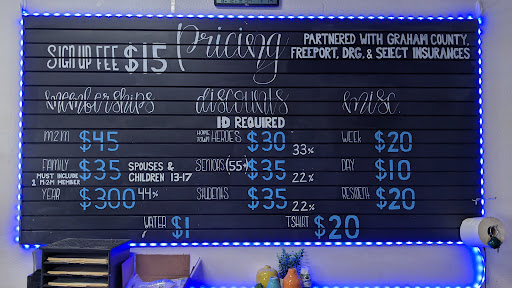 Pricing
SIGN UP FEE $15
PARTNERED WITH GRAHAM COUNTY,
FREEPORT, DRG, & SELECT INSURANCES
memberships
M2M $45
FAMILY $35 SPOUSES & CHILDREN 13-17
MUST INCLUDE
1 M2M MEMBER
YEAR $300 44%
discounts
ID REQUIRED
HOME TOWN HEROES $30 33%
SENIORS (55+) $35 22%
STUDENTS $35 22%
misc.
WEEK $20
DAY $10
RESIDENT $20
WATER $1
TSHIRT $20